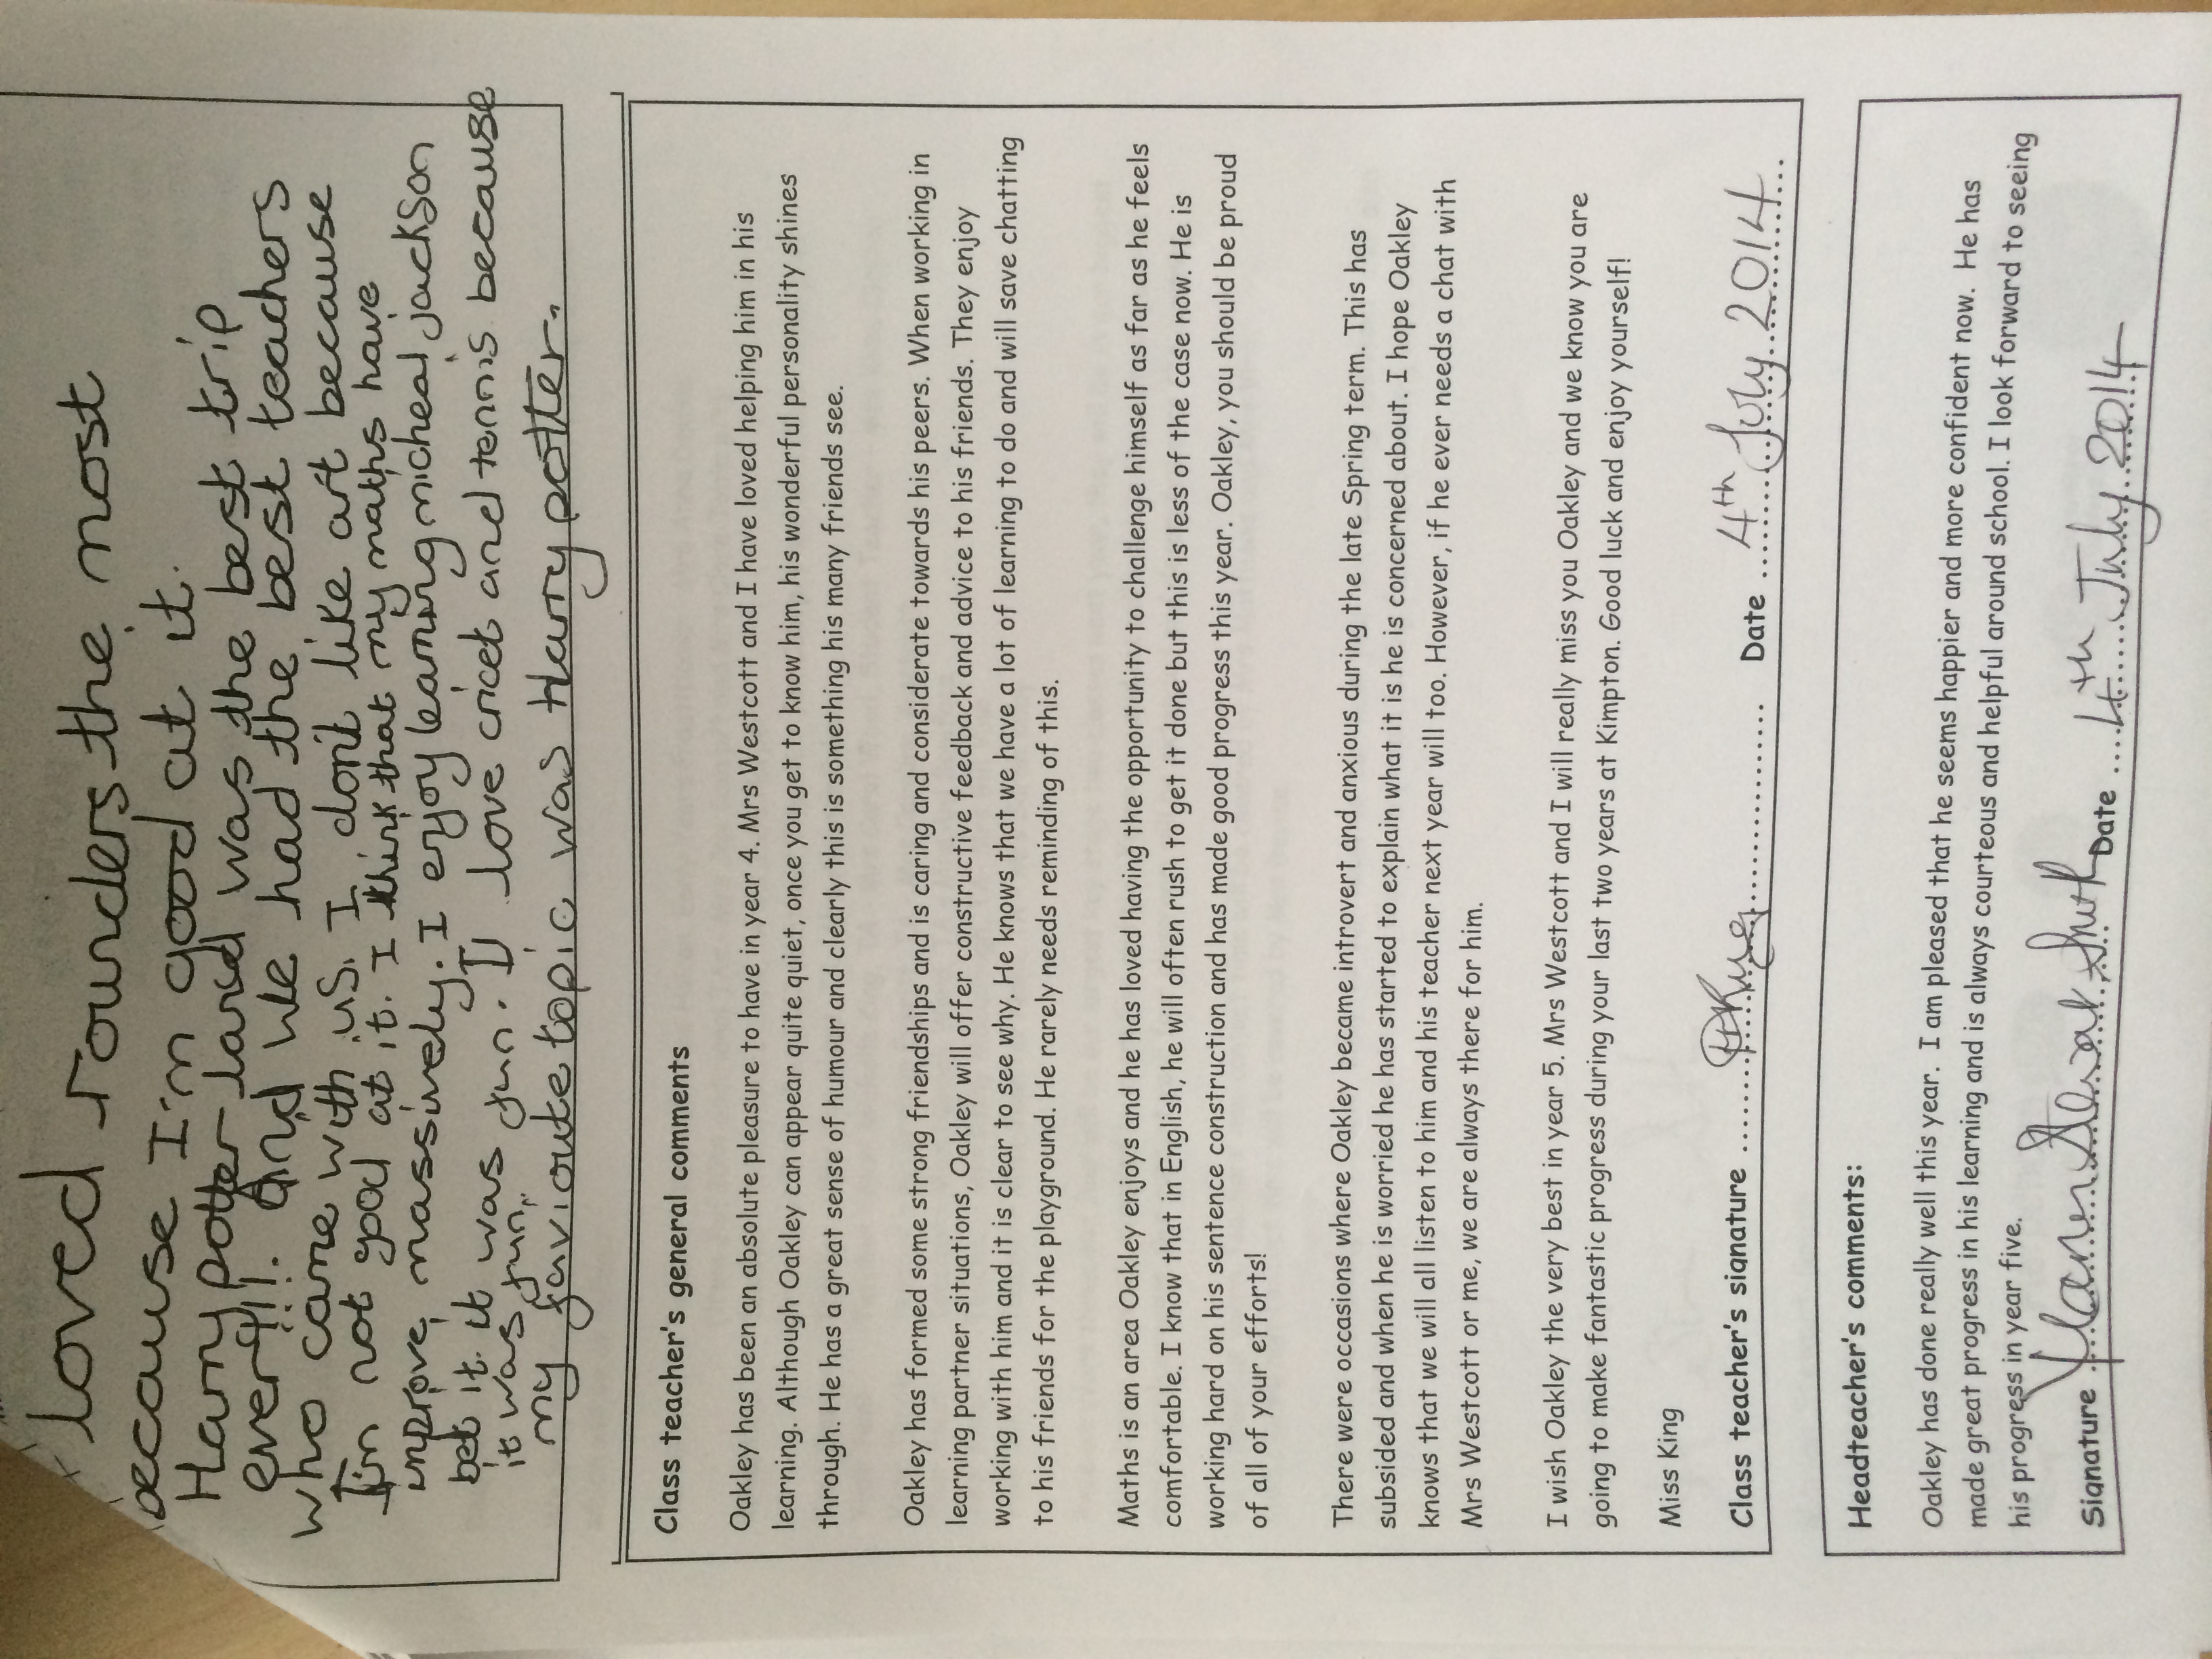 loved rounders the most
because I'm good at it.
Harry potter land was the best trip
ever!!!. And we had the best teachers
who came with us. I don't like art because
I'm not good at it. I think that my maths have
improve, massively. I enjoy learning micheal jackson
bet it. it was fun. I love cricet and tennis because
it was fun,
my faviourte topic was Harry potter.
Class teacher's general comments
Oakley has been an absolute pleasure to have in year 4. Mrs Westcott and I have loved helping him in his
learning. Although Oakley can appear quite quiet, once you get to know him, his wonderful personality shines
through. He has a great sense of humour and clearly this is something his many friends see.
Oakley has formed some strong friendships and is caring and considerate towards his peers. When working in
learning partner situations, Oakley will offer constructive feedback and advice to his friends. They enjoy
working with him and it is clear to see why. He knows that we have a lot of learning to do and will save chatting
to his friends for the playground. He rarely needs reminding of this.
Maths is an area Oakley enjoys and he has loved having the opportunity to challenge himself as far as he feels
comfortable. I know that in English, he will often rush to get it done but this is less of the case now. He is
working hard on his sentence construction and has made good progress this year. Oakley, you should be proud
of all of your efforts!
There were occasions where Oakley became introvert and anxious during the late Spring term. This has
subsided and when he is worried he has started to explain what it is he is concerned about. I hope Oakley
knows that we will all listen to him and his teacher next year will too. However, if he ever needs a chat with
Mrs Westcott or me, we are always there for him.
I wish Oakley the very best in year 5. Mrs Westcott and I will really miss you Oakley and we know you are
going to make fantastic progress during your last two years at Kimpton. Good luck and enjoy yourself!
Miss King
Class teacher's signature ........................ Date ....4th July 2014....
Headteacher's comments:
Oakley has done really well this year. I am pleased that he seems happier and more confident now. He has
made great progress in his learning and is always courteous and helpful around school. I look forward to seeing
his progress in year five.
Signature ........................ Date ....4th July 2014